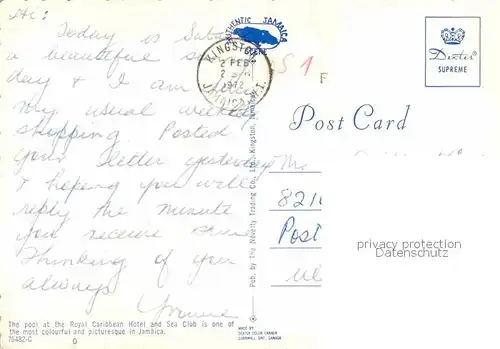 Hi:
Today is Satur
a beautiful s
day & I am
my usual weekly
shopping. Posted
your letter yesterday
& hoping you will
reply the minute
you receive
Thinking of you
always
Yvonne
The pool at the Royal Caribbean Hotel and Sea Club is one of
the most colourful and picturesque in Jamaica.
70482-C
AUTHENTIC JAMAICA
KINGSTON
2 FEB
1972
JAMAICA W.I.
S1
F
Pub. by The Novelty Trading Co., Ltd., Kingston, Jamaica
MADE BY
DEXTER COLOR CANADA
CORNWALL ONT, CANADA
Dexter
SUPREME
Post Card
821
Post
privacy protection
Datenschutz